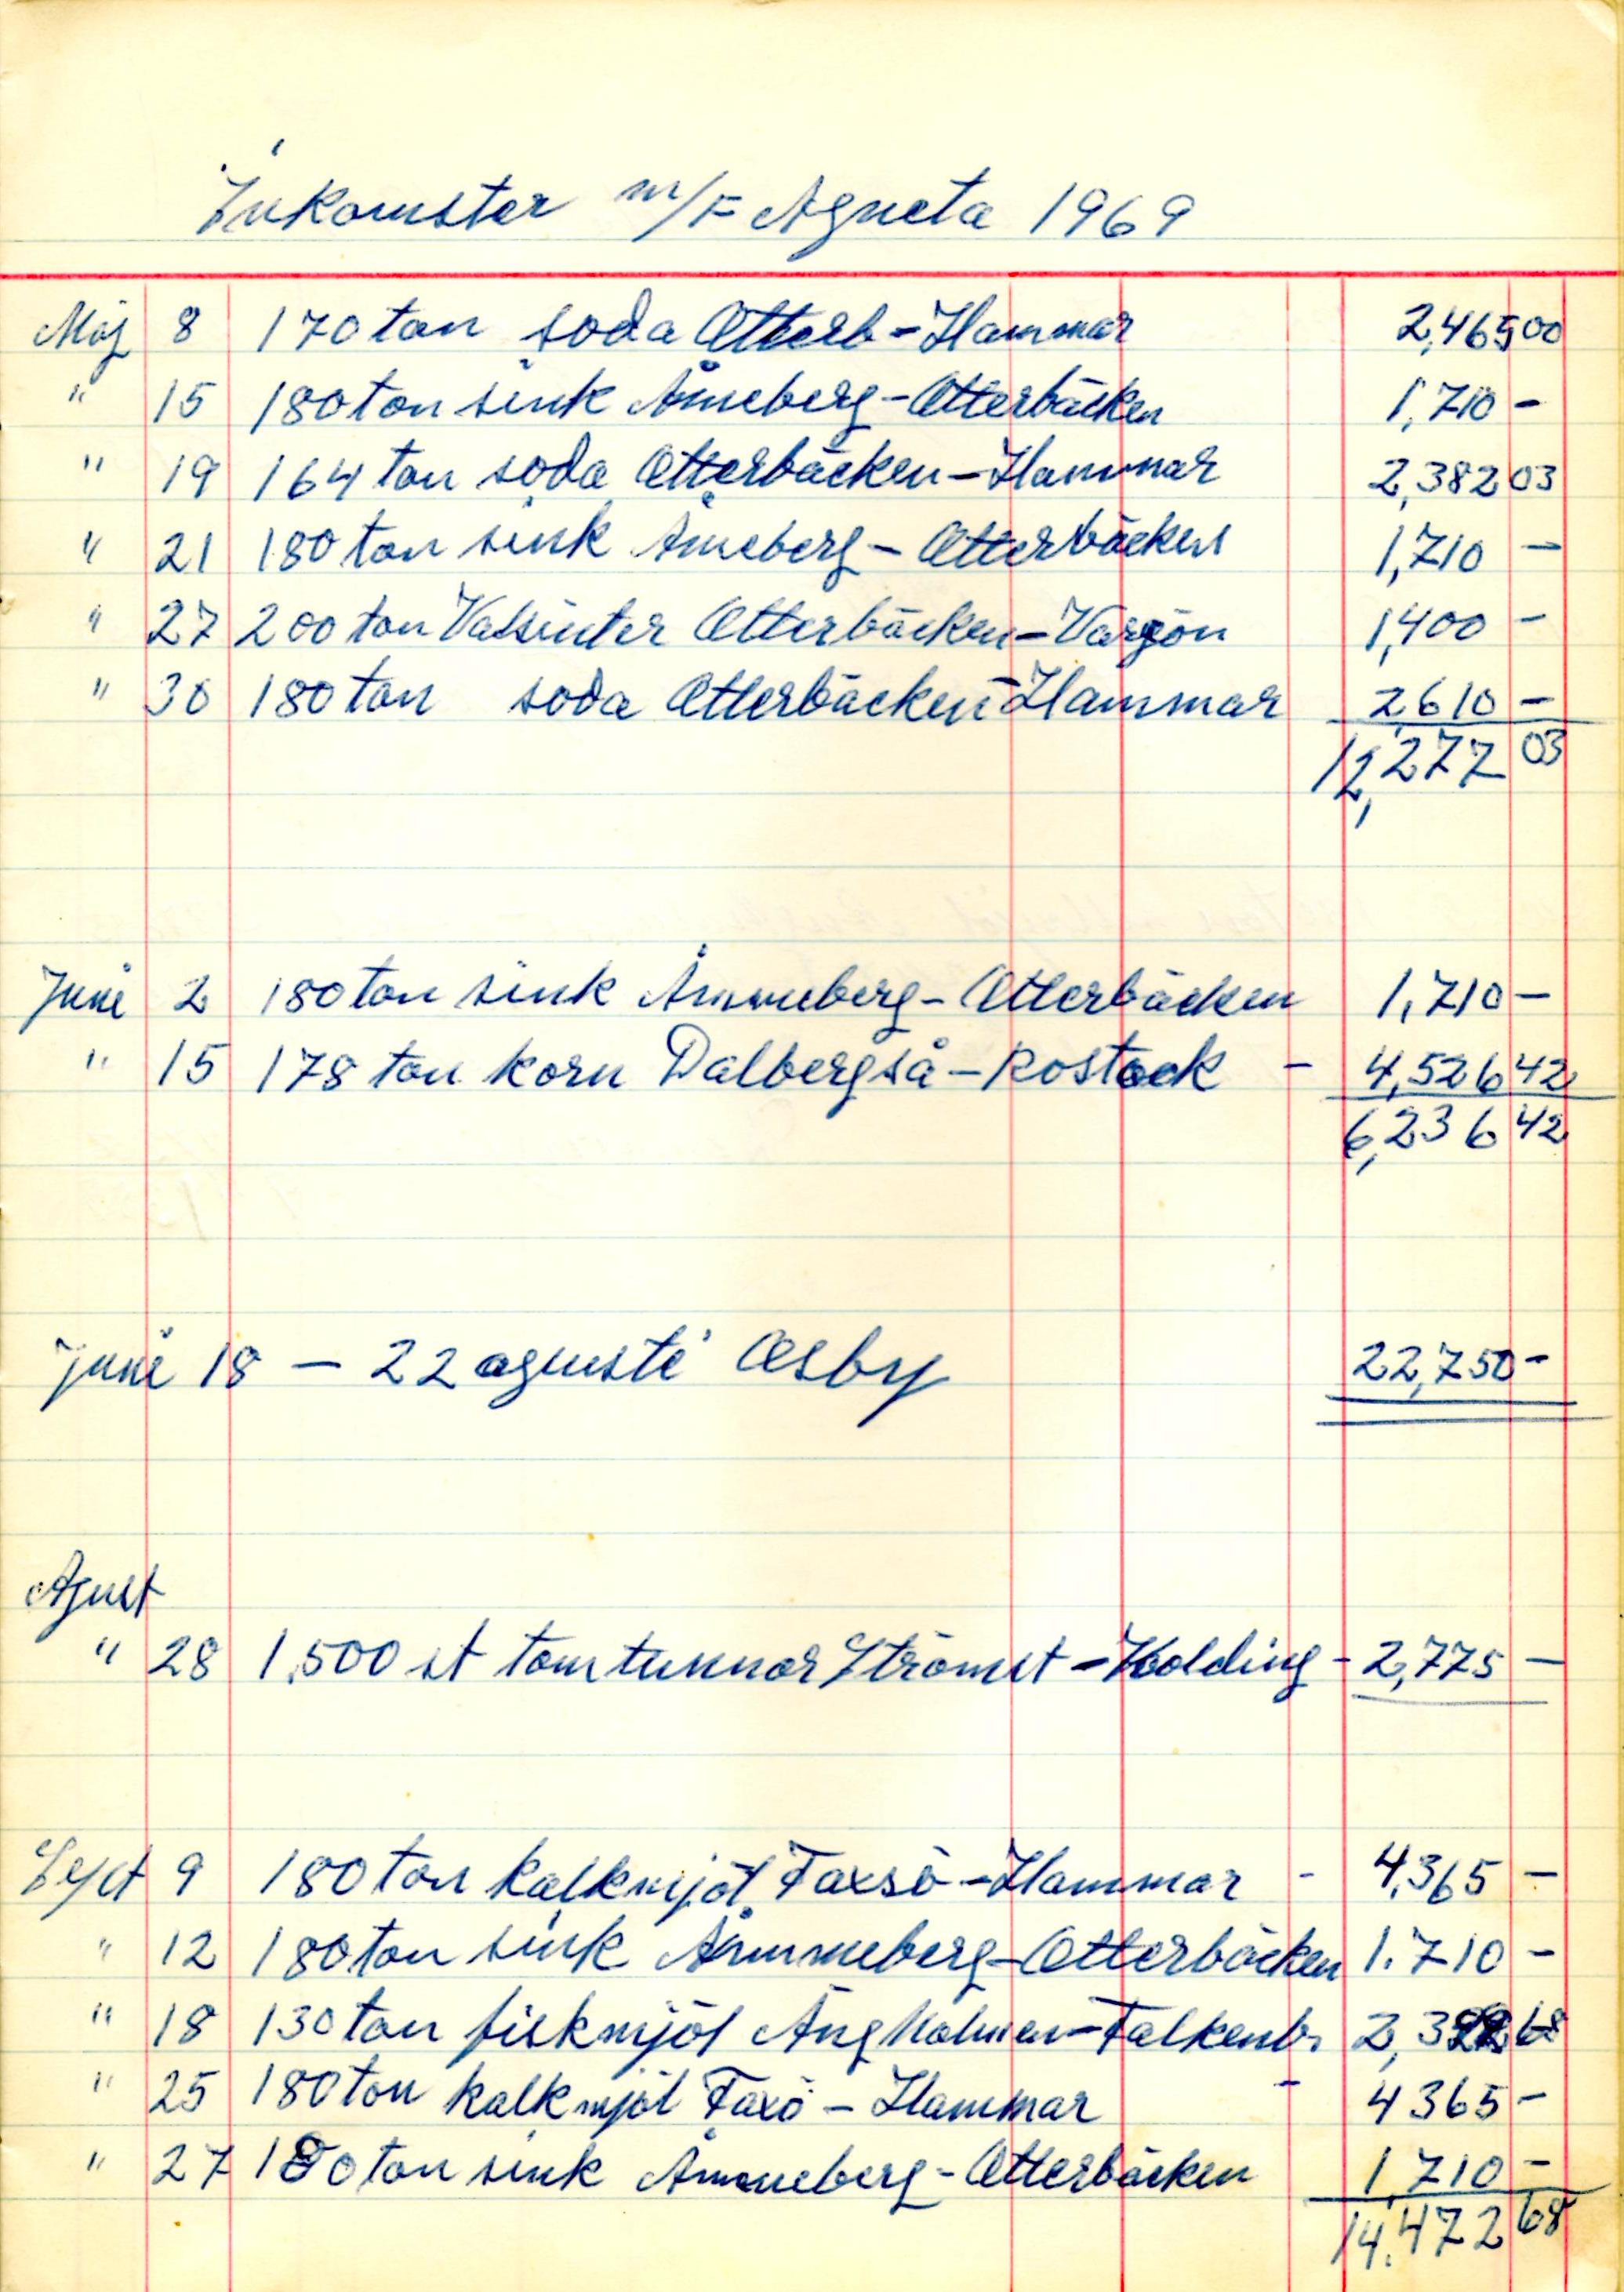 Inkomster m/F Agneta 1969
Maj 8 170 ton soda Otterb - Hammar 2,465 00
" 15 180 ton sink Åmeberg - Otterbäcken 1,710 -
" 19 164 ton soda Otterbäcken - Hammar 2,382 03
" 21 180 ton sink Åmeberg - Otterbäcken 1,710 -
" 27 200 ton Valsinter Otterbäcken - Vargön 1,400 -
" 30 180 ton soda Otterbäcken - Hammar 2,610 -
12,277 03
Juni 2 180 ton sink Åmmeberg - Otterbäcken 1,710 -
" 15 178 ton korn Dalbergså - Rostock - 4,526 42
6,236 42
Juni 18 - 22 agusti Oseby 22,750 -
Agust
" 28 1.500 st tomtunnor Strömst - Kolding - 2,775 -
Sept 9 180 ton kalkmjöl Faxsö - Hammar - 4,365 -
" 12 180 ton sink Åmmeberg - Otterbäcken 1.710 -
" 18 130 ton fiskmjöl Ängholmen - Falkenb. 2,322 68
" 25 180 ton kalkmjöl Faxö - Hammar - 4365 -
" 27 180 ton sink Åmmeberg - Otterbäcken 1,710 -
14.472 68